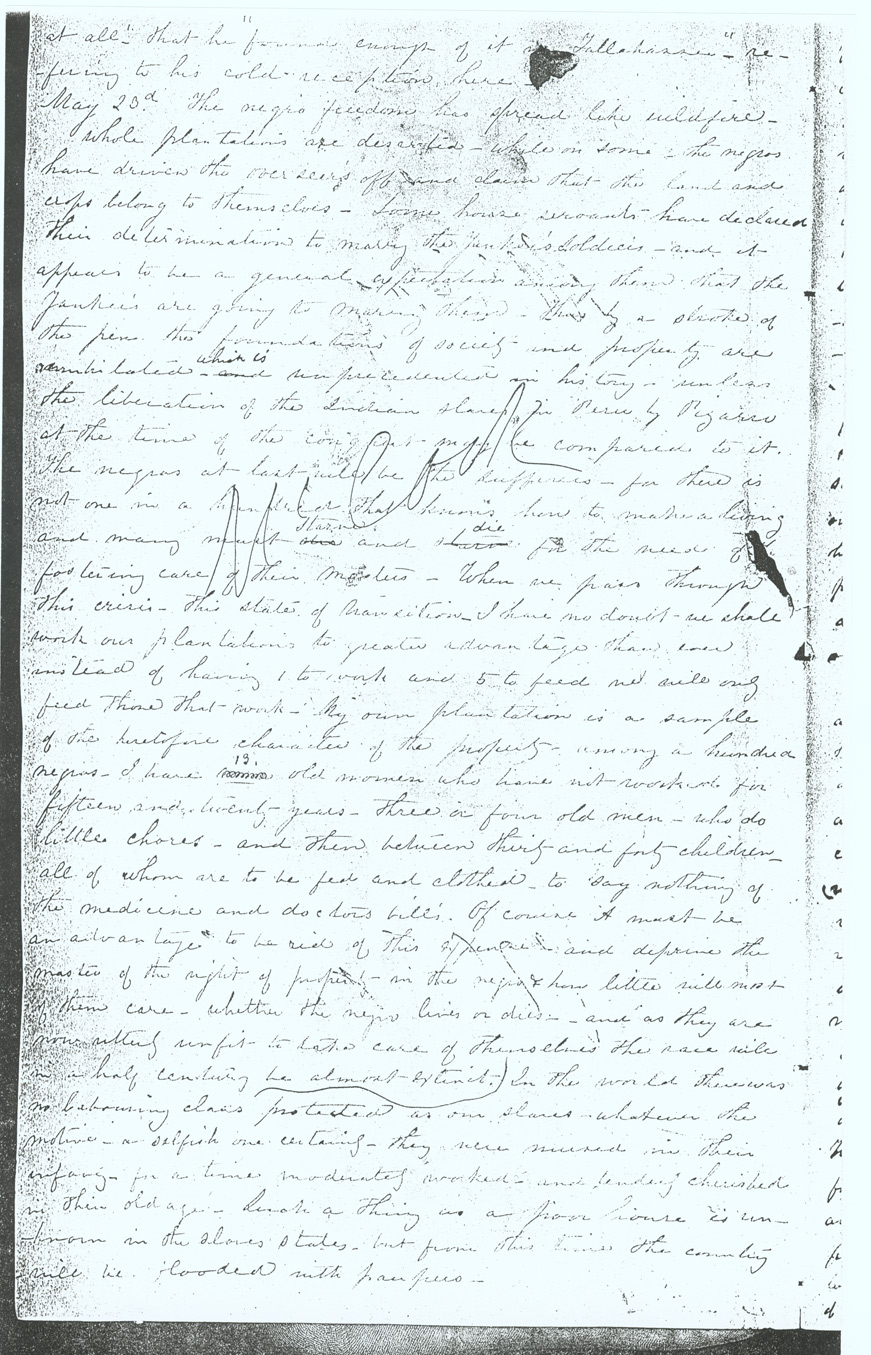 at all" that he "found enough of it in Tallahassee" re-
-fering to his cold reception here
May 23d The negro freedom has spread like wildfire -
whole plantations are deserted - while on some - the negros
have driven the overseers off and claim that the land and
crops belong to themselves - Some house servants have declared
their determination to marry the Yankee's soldiers - and it
appears to be a general expectation among them that the
Yankee's are going to marry them - thus by a stroke of
the pen the foundations of society and property are
annihilated - and which is unprecedented in history - unless
the liberation of the Indian slaves in Peru by Pizarro
at the time of the conquest may be compared to it.
The negros at last will be the sufferers - for there is
not one in a hundred that knows how to make a living
and many must starve and die for the need of
fostering care of their masters - When we pass through
this crisis - this state of transition - I have no doubt we shall
work our plantations to greater advantage than ever
instead of having 1 to work and 5 to feed we will only
feed those that work - My own plantation is a sample
of the heretofore character of the property - among a hundred
negros - I have 13. old women who have not worked for
fifteen and twenty years - three or four old men - who do
little chores - and then between thirty and forty children -
all of whom are to be fed and clothed - to say nothing of
the medicine and doctors bills. Of course it must be
an advantage to be rid of this expense - and deprive the
master of the right of property in the negro & how little will most
of them care - whether the negro lives or dies - and as they are
now utterly unfit to take care of themselves the race will
in a half century be almost extinct.) In the world there was
no labouring class protected as our slaves - whatever the
motive - a selfish one certainly - they were nursed in their
infancy - for a time moderately worked - and tenderly cherished
in their old age - Such a thing as a poor house is un-
-known in the slaves states - but from this time the country
will be flooded with paupers -